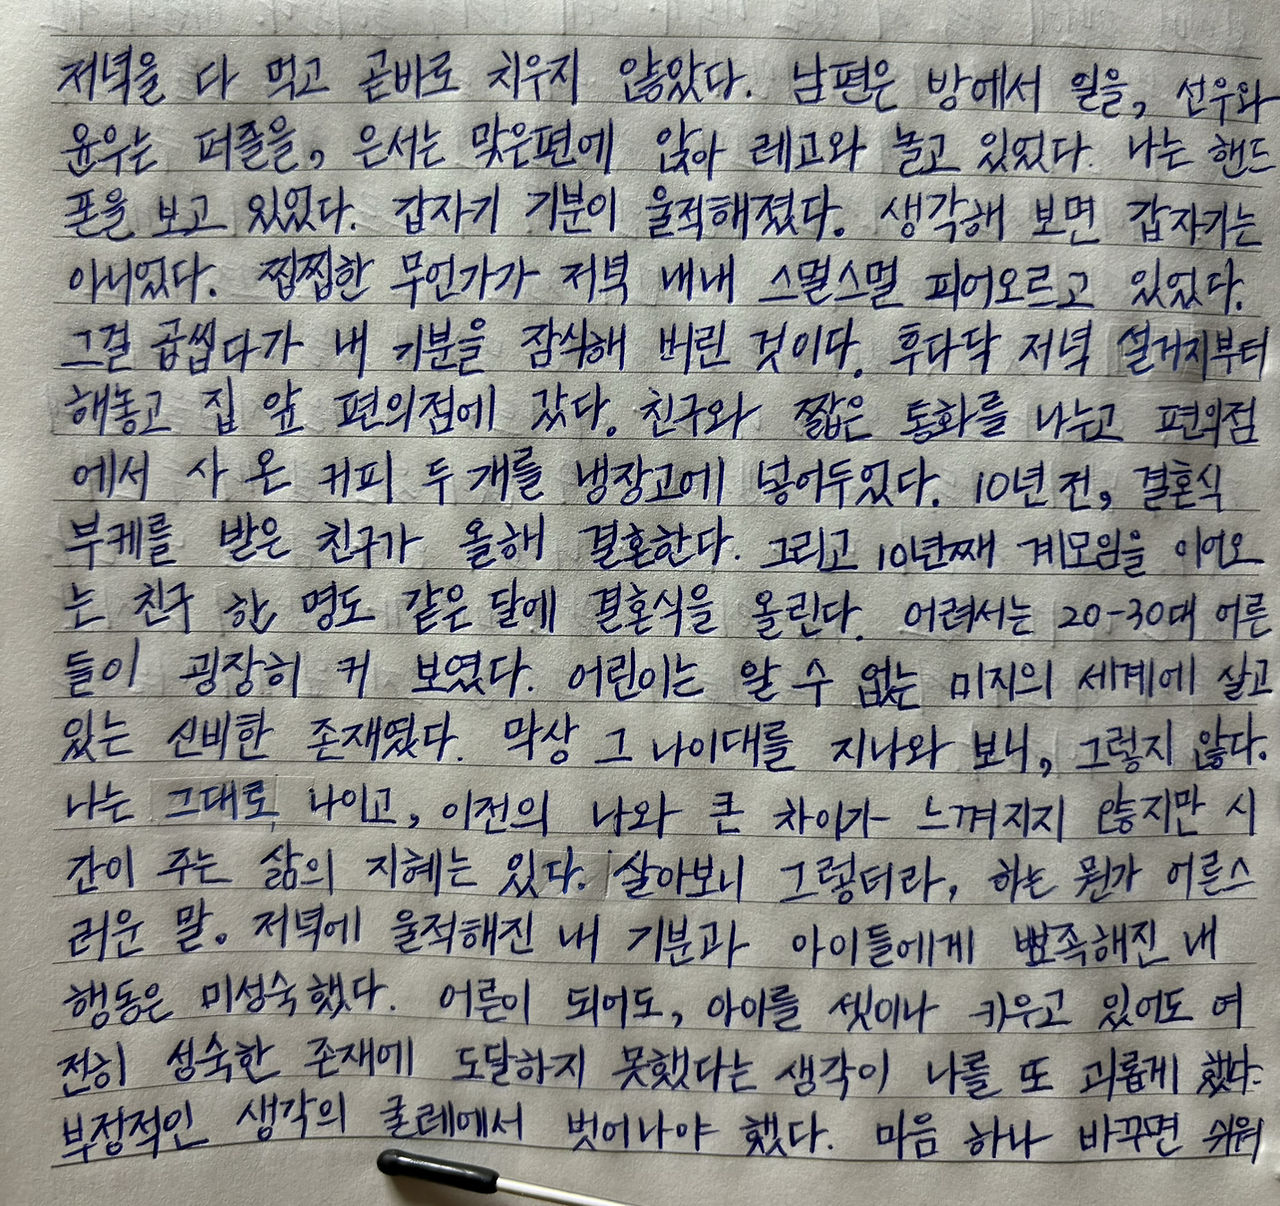 저녁을 다 먹고 곧바로 치우지 않았다. 남편은 방에서 일을, 선우와
윤우는 퍼즐을, 은서는 맞은편에 앉아 레고와 놀고 있었다. 나는 핸드
폰을 보고 있었다. 갑자기 기분이 울적해졌다. 생각해 보면 갑자기는
아니었다. 찝찝한 무언가가 저녁 내내 스멀스멀 피어오르고 있었다.
그걸 곱씹다가 내 기분을 잠식해 버린 것이다. 후다닥 저녁 설거지부터
해놓고 집 앞 편의점에 갔다. 친구와 짧은 통화를 나누고 편의점
에서 사 온 커피 두 개를 냉장고에 넣어두었다. 10년 전, 결혼식
부케를 받은 친구가 올해 결혼한다. 그리고 10년째 계모임을 이어오
는 친구 한 명도 같은 달에 결혼식을 올린다. 어려서는 20-30대 어른
들이 굉장히 커 보였다. 어린이는 알 수 없는 미지의 세계에 살고
있는 신비한 존재였다. 막상 그 나이대를 지나와 보니, 그렇지 않다.
나는 그대로 나이고, 이전의 나와 큰 차이가 느껴지지 않지만 시
간이 주는 삶의 지혜는 있다. 살아보니 그렇더라, 하는 뭔가 어른스
러운 말. 저녁에 울적해진 내 기분과 아이들에게 뾰족해진 내
행동은 미성숙했다. 어른이 되어도, 아이를 셋이나 키우고 있어도 여
전히 성숙한 존재에 도달하지 못했다는 생각이 나를 또 괴롭게 했다.
부정적인 생각의 굴레에서 벗어나야 했다. 마음 하나 바꾸면 쉬워